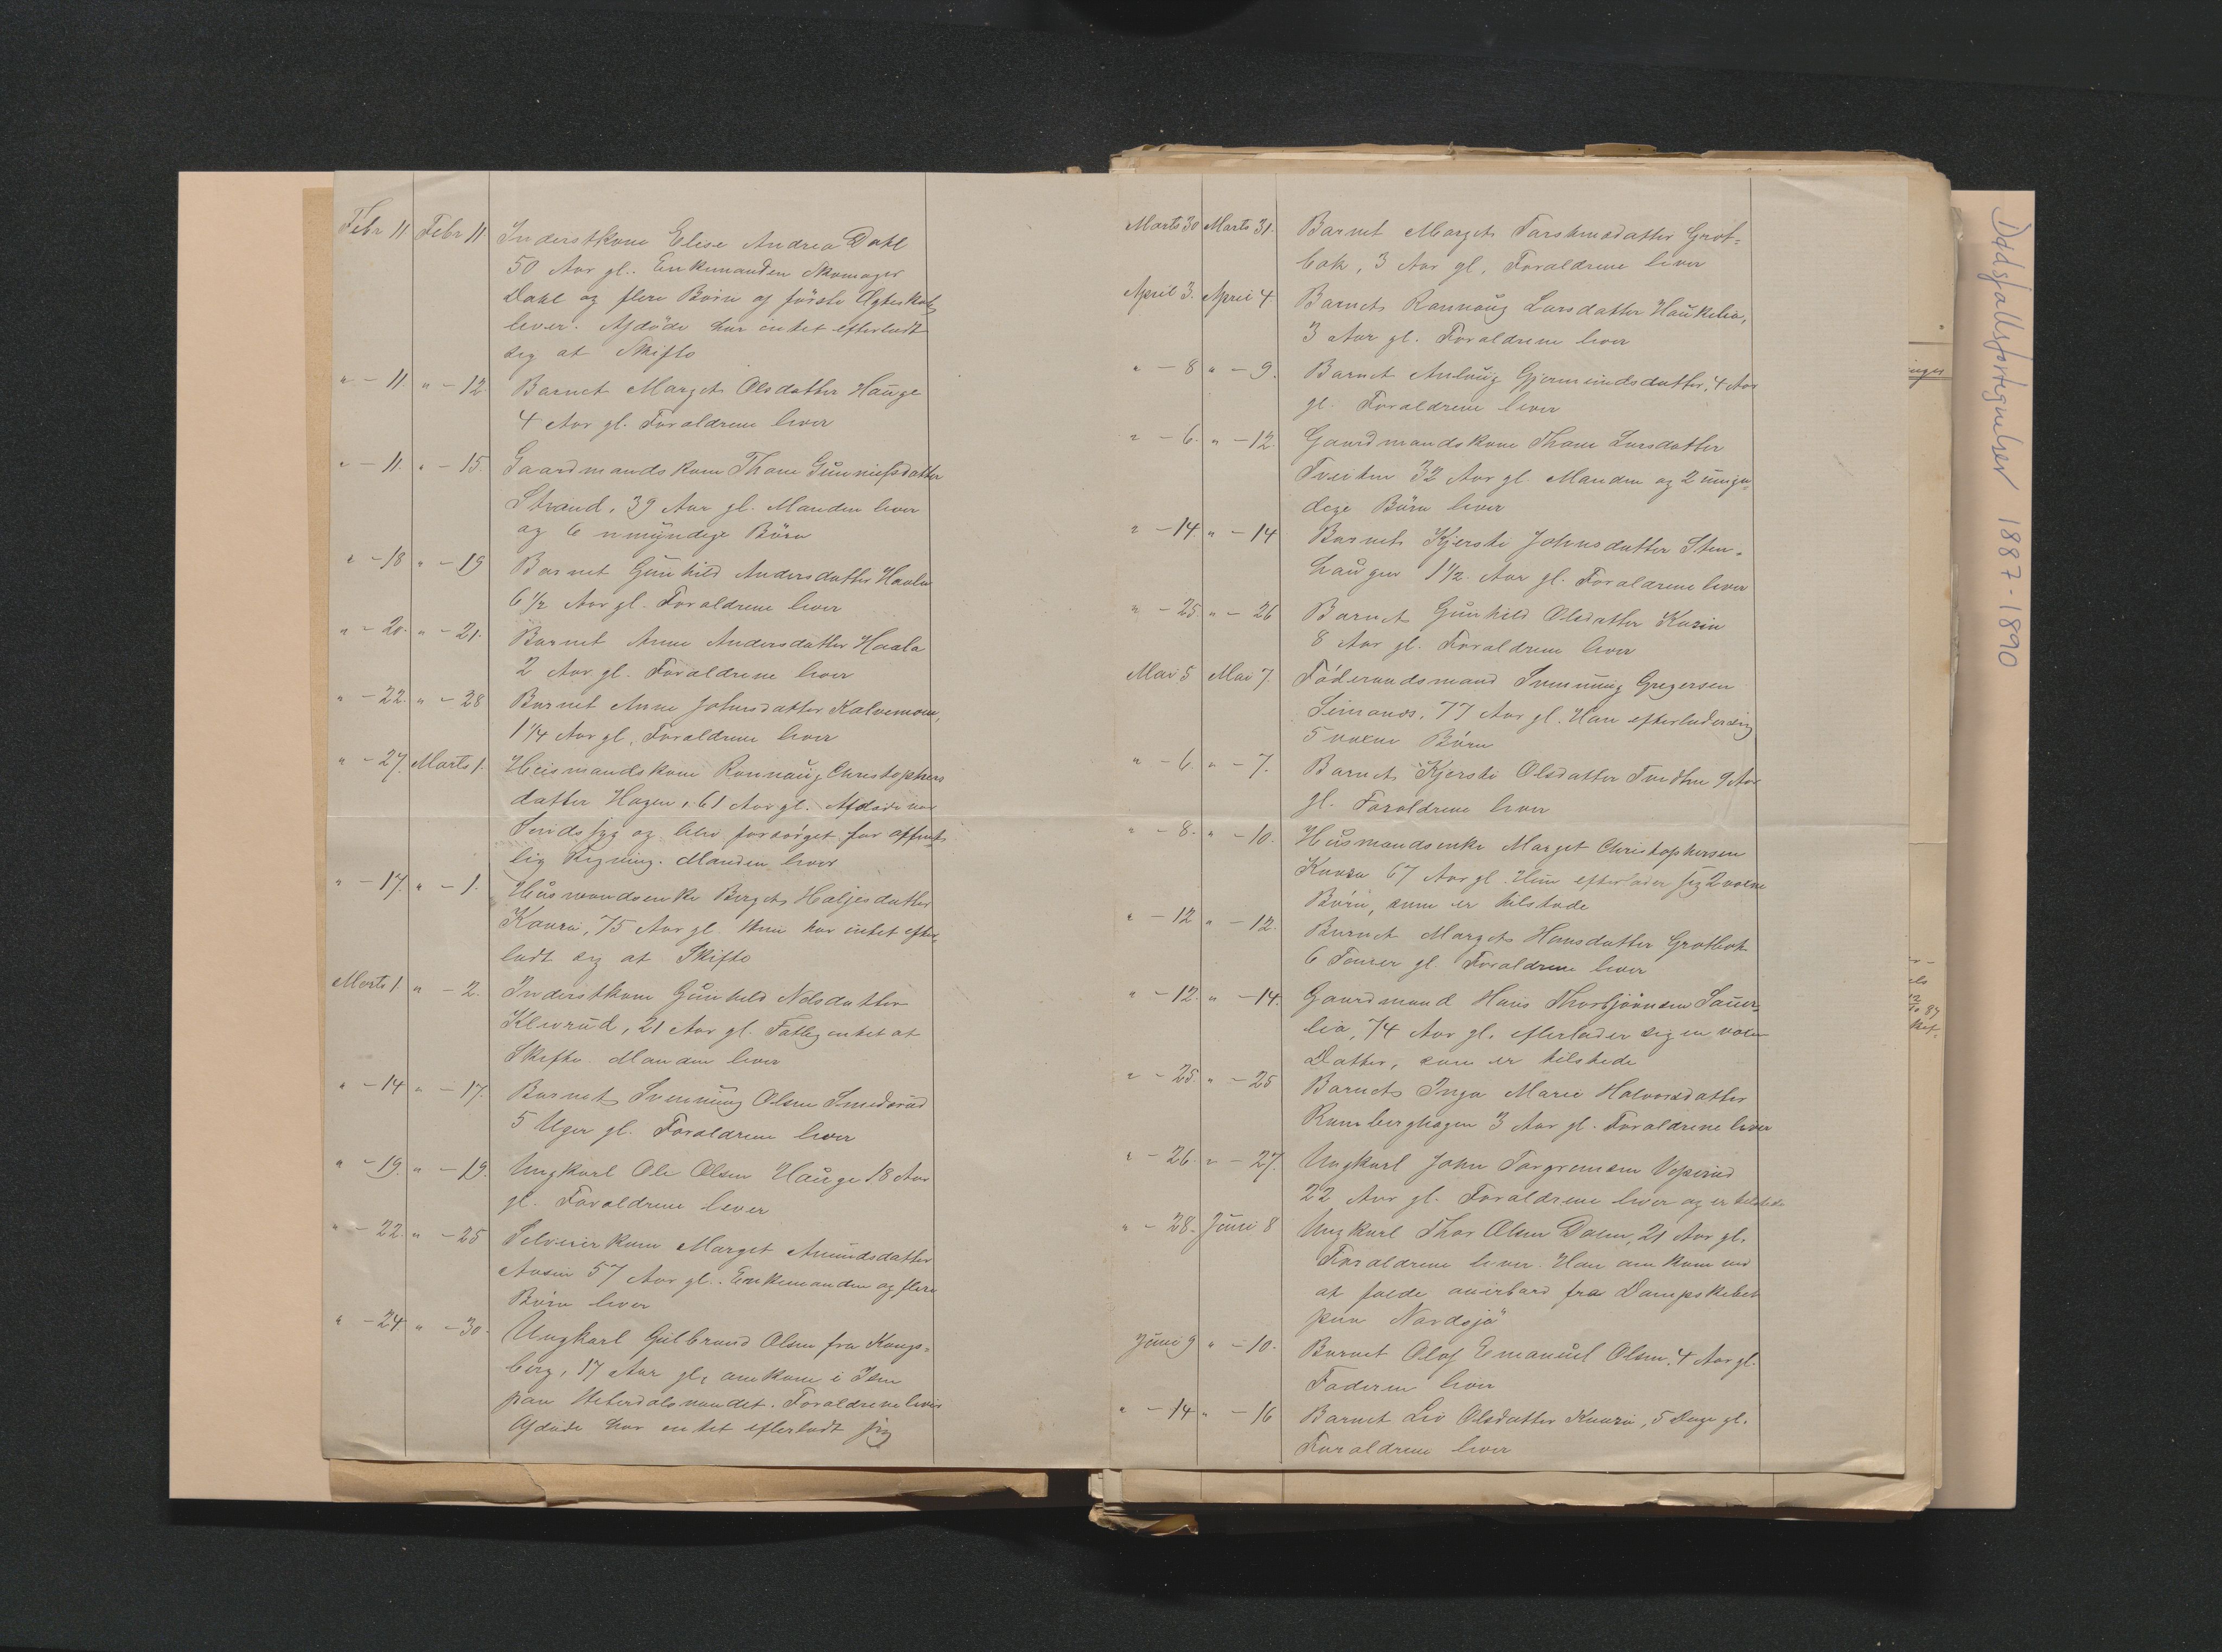 Febr 11 Febr 11 Inderstkone Elise Andrea Dahl
50 Aar gl. Enkemanden Skomager
Dahl og flere Börn af förste Ægteskab
lever. Afdöde har intet efterladt
sig at Skifte
" - 11 " - 12 Barnet Margit Olsdatter Hauge
4 Aar gl. Foraldrene lever
" - 11. " - 15. Gaardmandskone Thone Gunniefsdatter
Strand, 39 Aar gl. Manden lever
og 6 umyndige Börn
" - 18 " - 19 Barnet Gunhild Andersdatter Haala
6 1/2 Aar gl. Foraldrene lever
" - 20. " - 21. Barnet Anne Andersdatter Haala
2 Aar gl. Foraldrene lever
" - 22. " - 28 Barnet Anne Johnsdatter Kalvemoen,
1 1/4 Aar gl, Foraldrene lever
" - 27. Marts 1. Husmandskone Ronnaug Christophers
datter Hagen, 61 Aar gl. Afdöde var
Sindssyg og blev forsörget for offent-
lig Regning. Manden lever
" - 17. " - 1. Husmandsenke Bergit Haljesdatter
Kaasa, 75 Aar gl. Hun har intet efter-
ladt sig at Skifte
Marts 1 " - 2. Inderstkone Gunhild Nilsdatter
Kleivrud, 21 Aar gl. Fattig intet at
Skifte. Manden lever
" - 14 " - 17. Barnet Svenning Olsen Smedsrud
5 Uger gl. Foraldrene lever
" - 19. " - 19. Ungkarl Ole Olsen Hauge 18 Aar
gl. Foraldrene lever
" - 22. " - 25 Selveierkone Marget Amundsdatter
Aasen 57 Aar gl. Enkemanden og flere
Börn lever
" - 24 " - 30. Ungkarl Gulbrand Olsen fra Kongs-
berg, 17 Aar gl, omkom i Isen
paa Hiterdalsvandet. Foraldrene lever
Afdöde har intet efterladt sig
Marts 30 Marts 31. Barnet Margit Torstensdatter Grot-
bæk, 3 Aar gl, Foraldrene lever
April 3. April 4. Barnet Ronnaug Larsdatter Haukelia,
3 Aar gl. Foraldrene lever
" - 8 " - 9. Barnet Anlaug Gjermundsdatter, 4 Aar
gl. Foraldrene lever
" - 6. " - 12. Gaardmandskone Thone Larsdatter
Tveiten 32 Aar gl. Manden og 2 umyn-
dige Börn lever
" - 14. " - 14 Barnet Kjersti Johnsdatter Sten-
haugen 1 1/2. Aar gl. Foraldrene lever
" - 25. " - 26 Barnet Gunhild Olsdatter Kasin
8 Aar gl. Foraldrene lever
Mai 5 Mai 7. Föderaadsmand Svenning Gregersen
Semanos, 77 Aar gl. Han efterlader sig
5 voxne Börn
" - 6. " - 7. Barnet Kjersti Olsdatter Tvedten 9 Aar
gl. Foraldrene lever
" - 8. " - 10. Husmandsenke Marget Christophersen
Kaasa 67 Aar gl. Hun efterlader sig 2 voxne
Börn, som er tilstede
" - 12 " - 12. Barnet Margit Hansdatter Grotbæk
6 Timer gl. Foraldrene lever
" - 12. " - 14. Gaardmand Hans Thorbjörnsen Sauer-
lia, 74 Aar gl. efterlader sig en voxen
Datter, som er tilstede
" - 25. " - 25 Barnet Inga Marie Halvorsdatter
Ramberghagen 3 Aar gl. Foraldrene lever
" - 26. " - 27. Ungkarl John Torgrimsen Vepsrud
22 Aar gl. Foraldrene lever og er tilstede
" - 28. Juni 8 Ungkarl Thor Olsen Dalen, 21 Aar gl.
Foraldrene lever. Han omkom ved
at falde overbord fra Dampskibet
paa Nordsjö
Juni 9 " - 10. Barnet Olaf Emanuel Olsen, 4 Aar gl.
Faderen lever
" - 14 " - 16 Barnet Liv Olsdatter Kaasa, 5 Dage gl.
Foraldrene lever
Dødsfallsfortegnelser 1887-1890